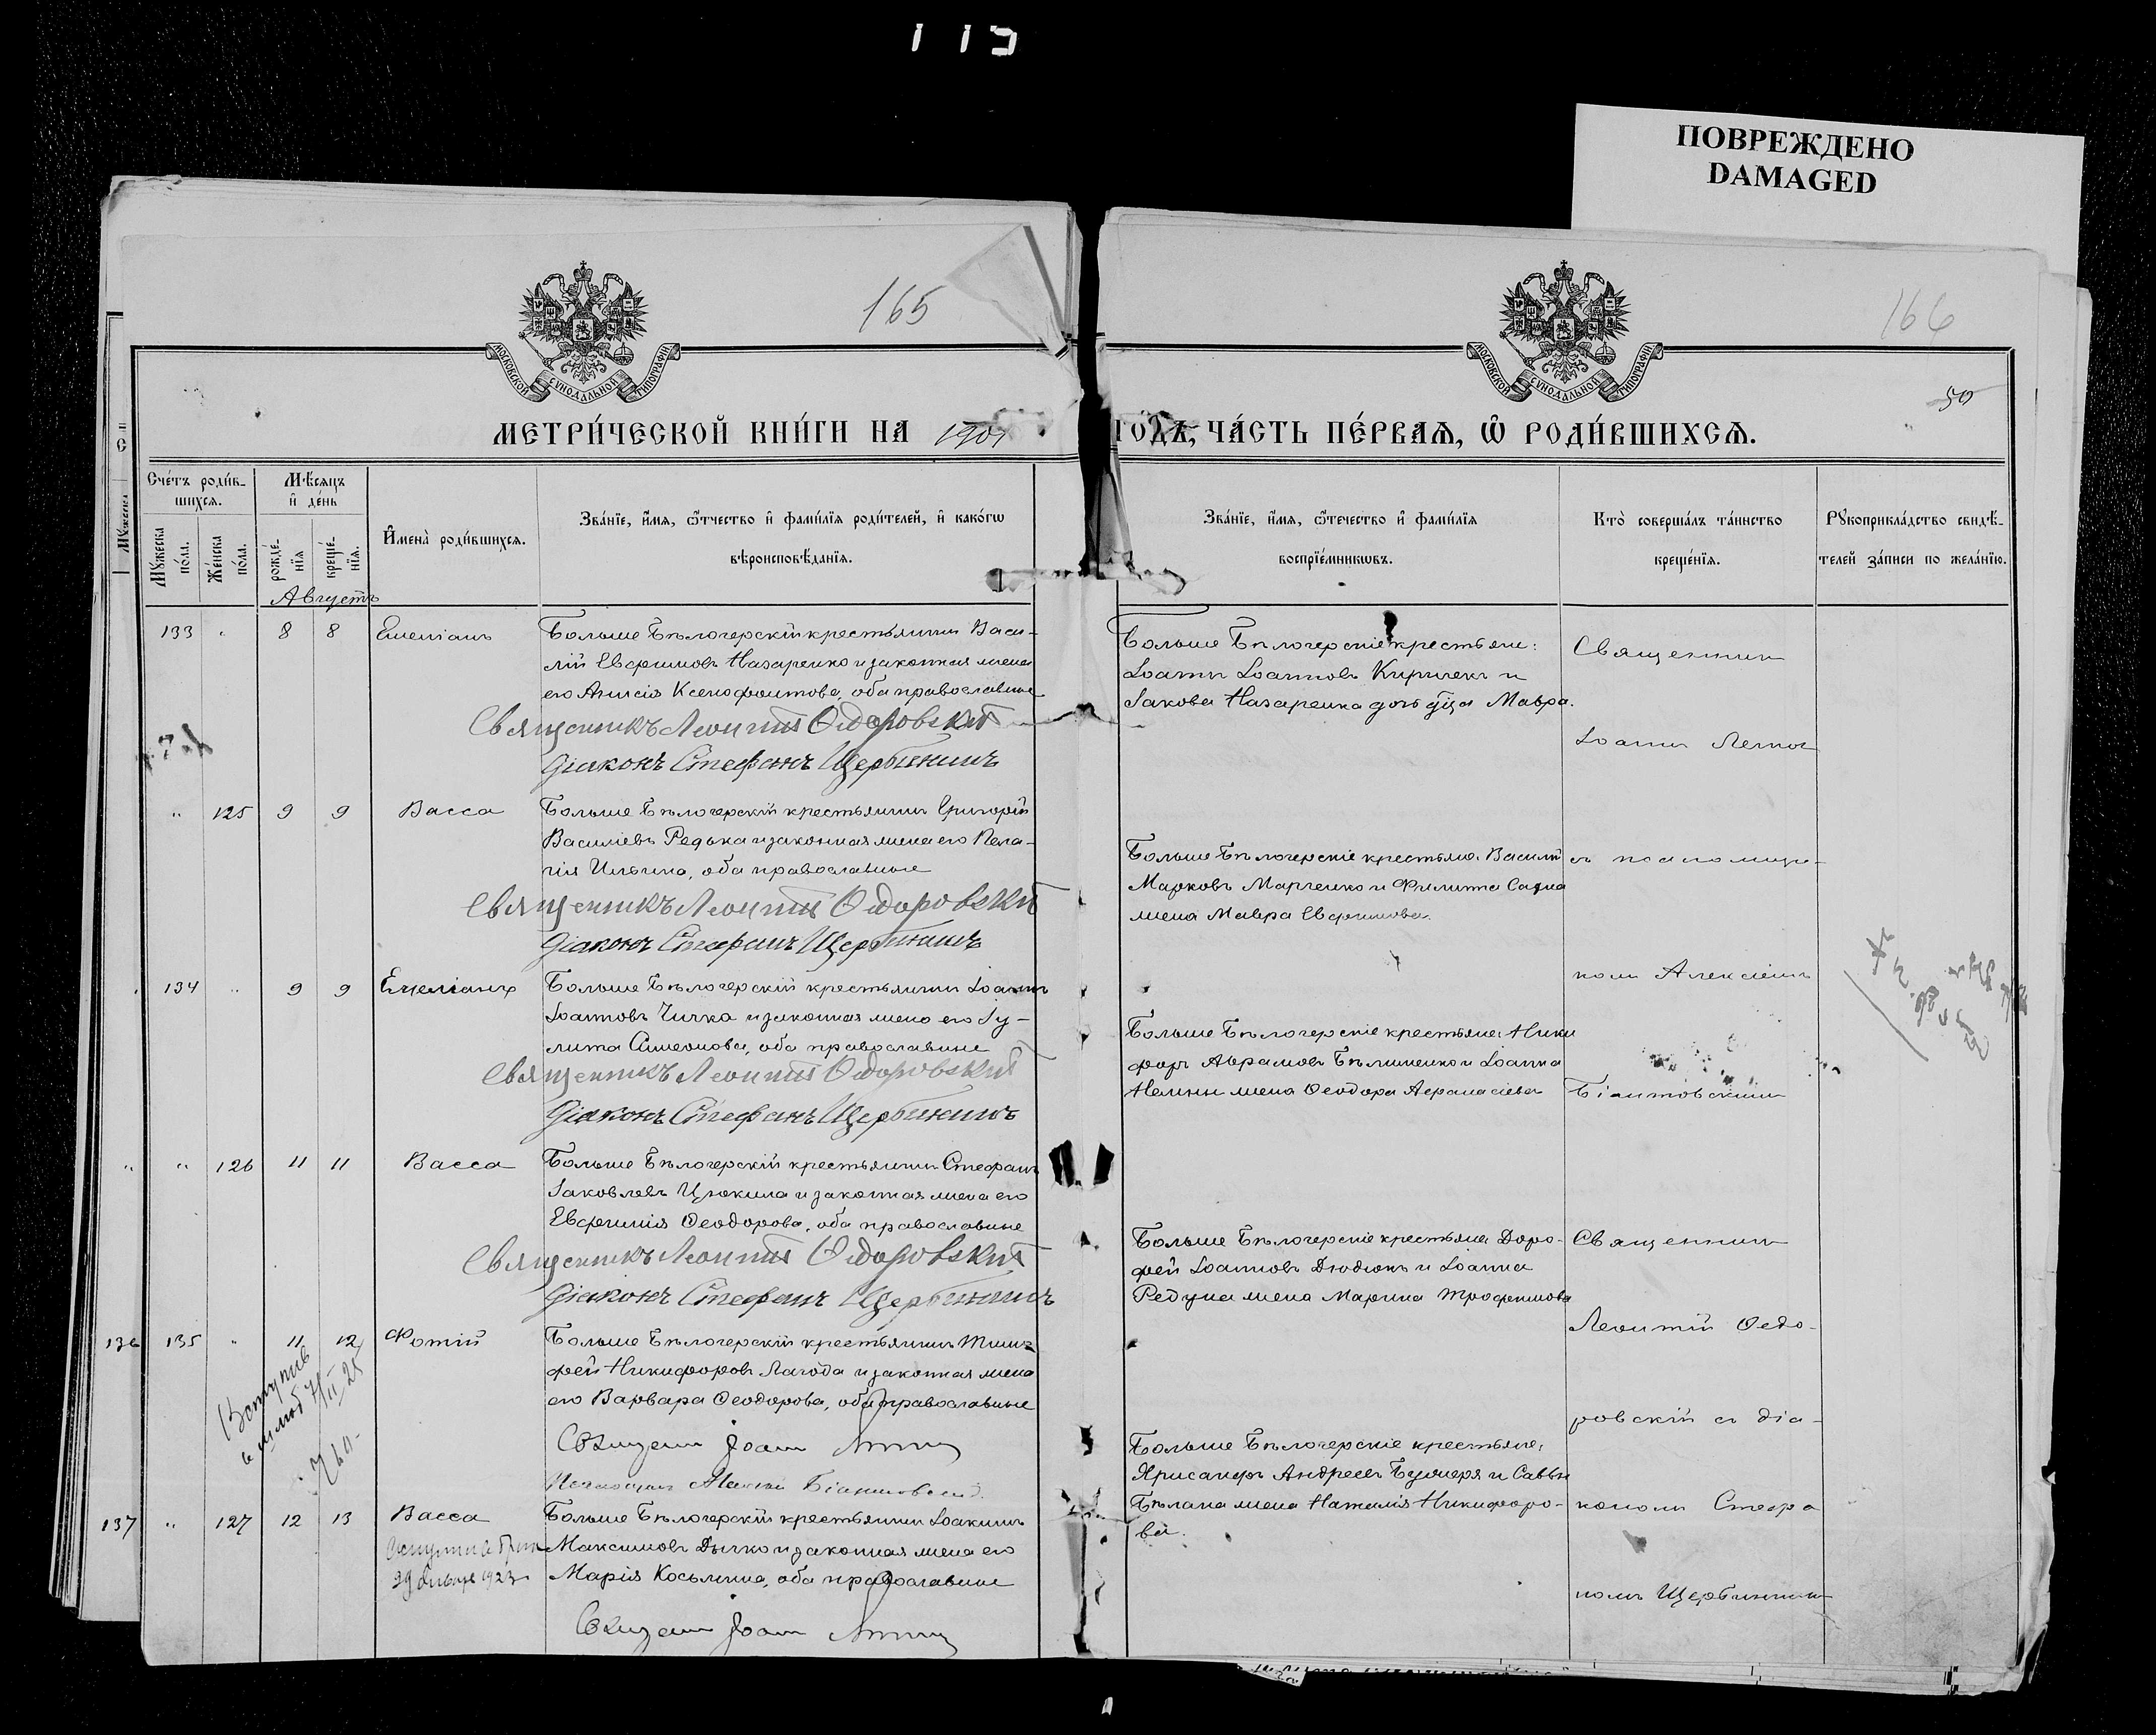 113
ПОВРЕЖДЕНО
DAMAGED
165
166
МОСКОВСКОЙ СУНОДАЛЬНОЙ ТИПОГРАФІИ
МОСКОВСКОЙ СУНОДАЛЬНОЙ ТИПОГРАФІИ
50
МЕТРИ́ЧЕСКОЙ КНИ́ГИ НА 1901 ГО́ДЪ, ЧА́СТЬ ПЕ́РВАѦ, Ѡ РОДИ́ВШИХСѦ.
Сче́тъ роди́в-
шихсѧ.
Мѣ́сѧцъ
и҆ де́нь
Мꙋ́жеска
по́ла.
Же́нска
по́ла.
рожде́-
нїѧ
креще́-
нїѧ.
И҆мена̀ роди́вшихсѧ.
Зва́нїе, и҆́мѧ, ѿтчество и҆ фами́лїѧ роди́телей, и҆ како́гѡ
вѣроисповѣ́данїѧ.
Зва́нїе, и҆́мѧ, ѿтечество и҆ фами́лїѧ
воспрїе́мникѡвъ.
Кто̀ соверша́лъ та́инство
креще́нїѧ.
Рꙋкоприкла́дство свидѣ́-
телей за́писи по жела́нїю.
Августъ
133 " 8 8 Емеліанъ
Больше Бѣлозерскій крестьянинъ Васи-
лій Евфимовъ Назаренко и законная жена
его Анисія Ксенофонтова, оба православные
Священникъ Леонтій Ѳедоровскій
Діаконъ Стефанъ Щербининъ
Больше Бѣлозерскіе крестьяне:
Іоаннъ Іоанновъ Киричекъ и
Іакова Назаренка дочь дѣвица Мавра.
Священникъ
Іоаннъ
" 125 9 9 Васса
Больше Бѣлозерскій крестьянинъ Григорій
Василіевъ Редька и законная жена его Пела-
гія Ильина, оба православные
Священникъ Леонтій Ѳедоровскій
Діаконъ Стефанъ Щербининъ
Больше Бѣлозерскіе крестьяне: Василій
Марковъ Марченко и Филиппа
жена Мавра Евфимова.
съ псаломщи-
комъ Алексіемъ
134 " 9 9 Емеліанъ
Больше Бѣлозерскій крестьянинъ Іоаннъ
Іоанновъ Чичка и законная жена его Іу-
лита Симеонова, оба православные
Священникъ Леонтій Ѳедоровскій
Діаконъ Стефанъ Щербининъ
Больше Бѣлозерскіе крестьяне Ники
форъ Аврамовъ и Іоанна
жена Ѳеодора Аѳанасіева
" " 126 11 11 Васса
Больше Бѣлозерскій крестьянинъ Стефанъ
Іаковлевъ Цюкила и законная жена его
Евфимія Ѳеодорова, оба православные
Священникъ Леонтій Ѳедоровскій
Діаконъ Стефанъ Щербининъ
Больше Бѣлозерскіе крестьяне Доро-
фей Іоанновъ Дюдюкъ и Іоанна
Редуна жена Марина Трофимова
Священникъ
Леонтій Ѳедо-
136 135 " 11 12 Фотій
Больше Бѣлозерскій крестьянинъ Тимо-
фей Никифоровъ Лагода и законная жена
его Варвара Ѳеодорова, оба православные
Больше Бѣлозерскіе крестьяне,
Хрисанфъ Андреевъ и Саввы
Бѣлана жена Наталія Никифоро-
ва.
ровскій съ діа-
кономъ Стефа
номъ Щербининымъ
137 " 127 12 13 Васса
29 Января 1923
Больше Бѣлозерскій крестьянинъ Іоакимъ
Максимовъ Дычко и законная жена его
Марія Косьмина, оба православные